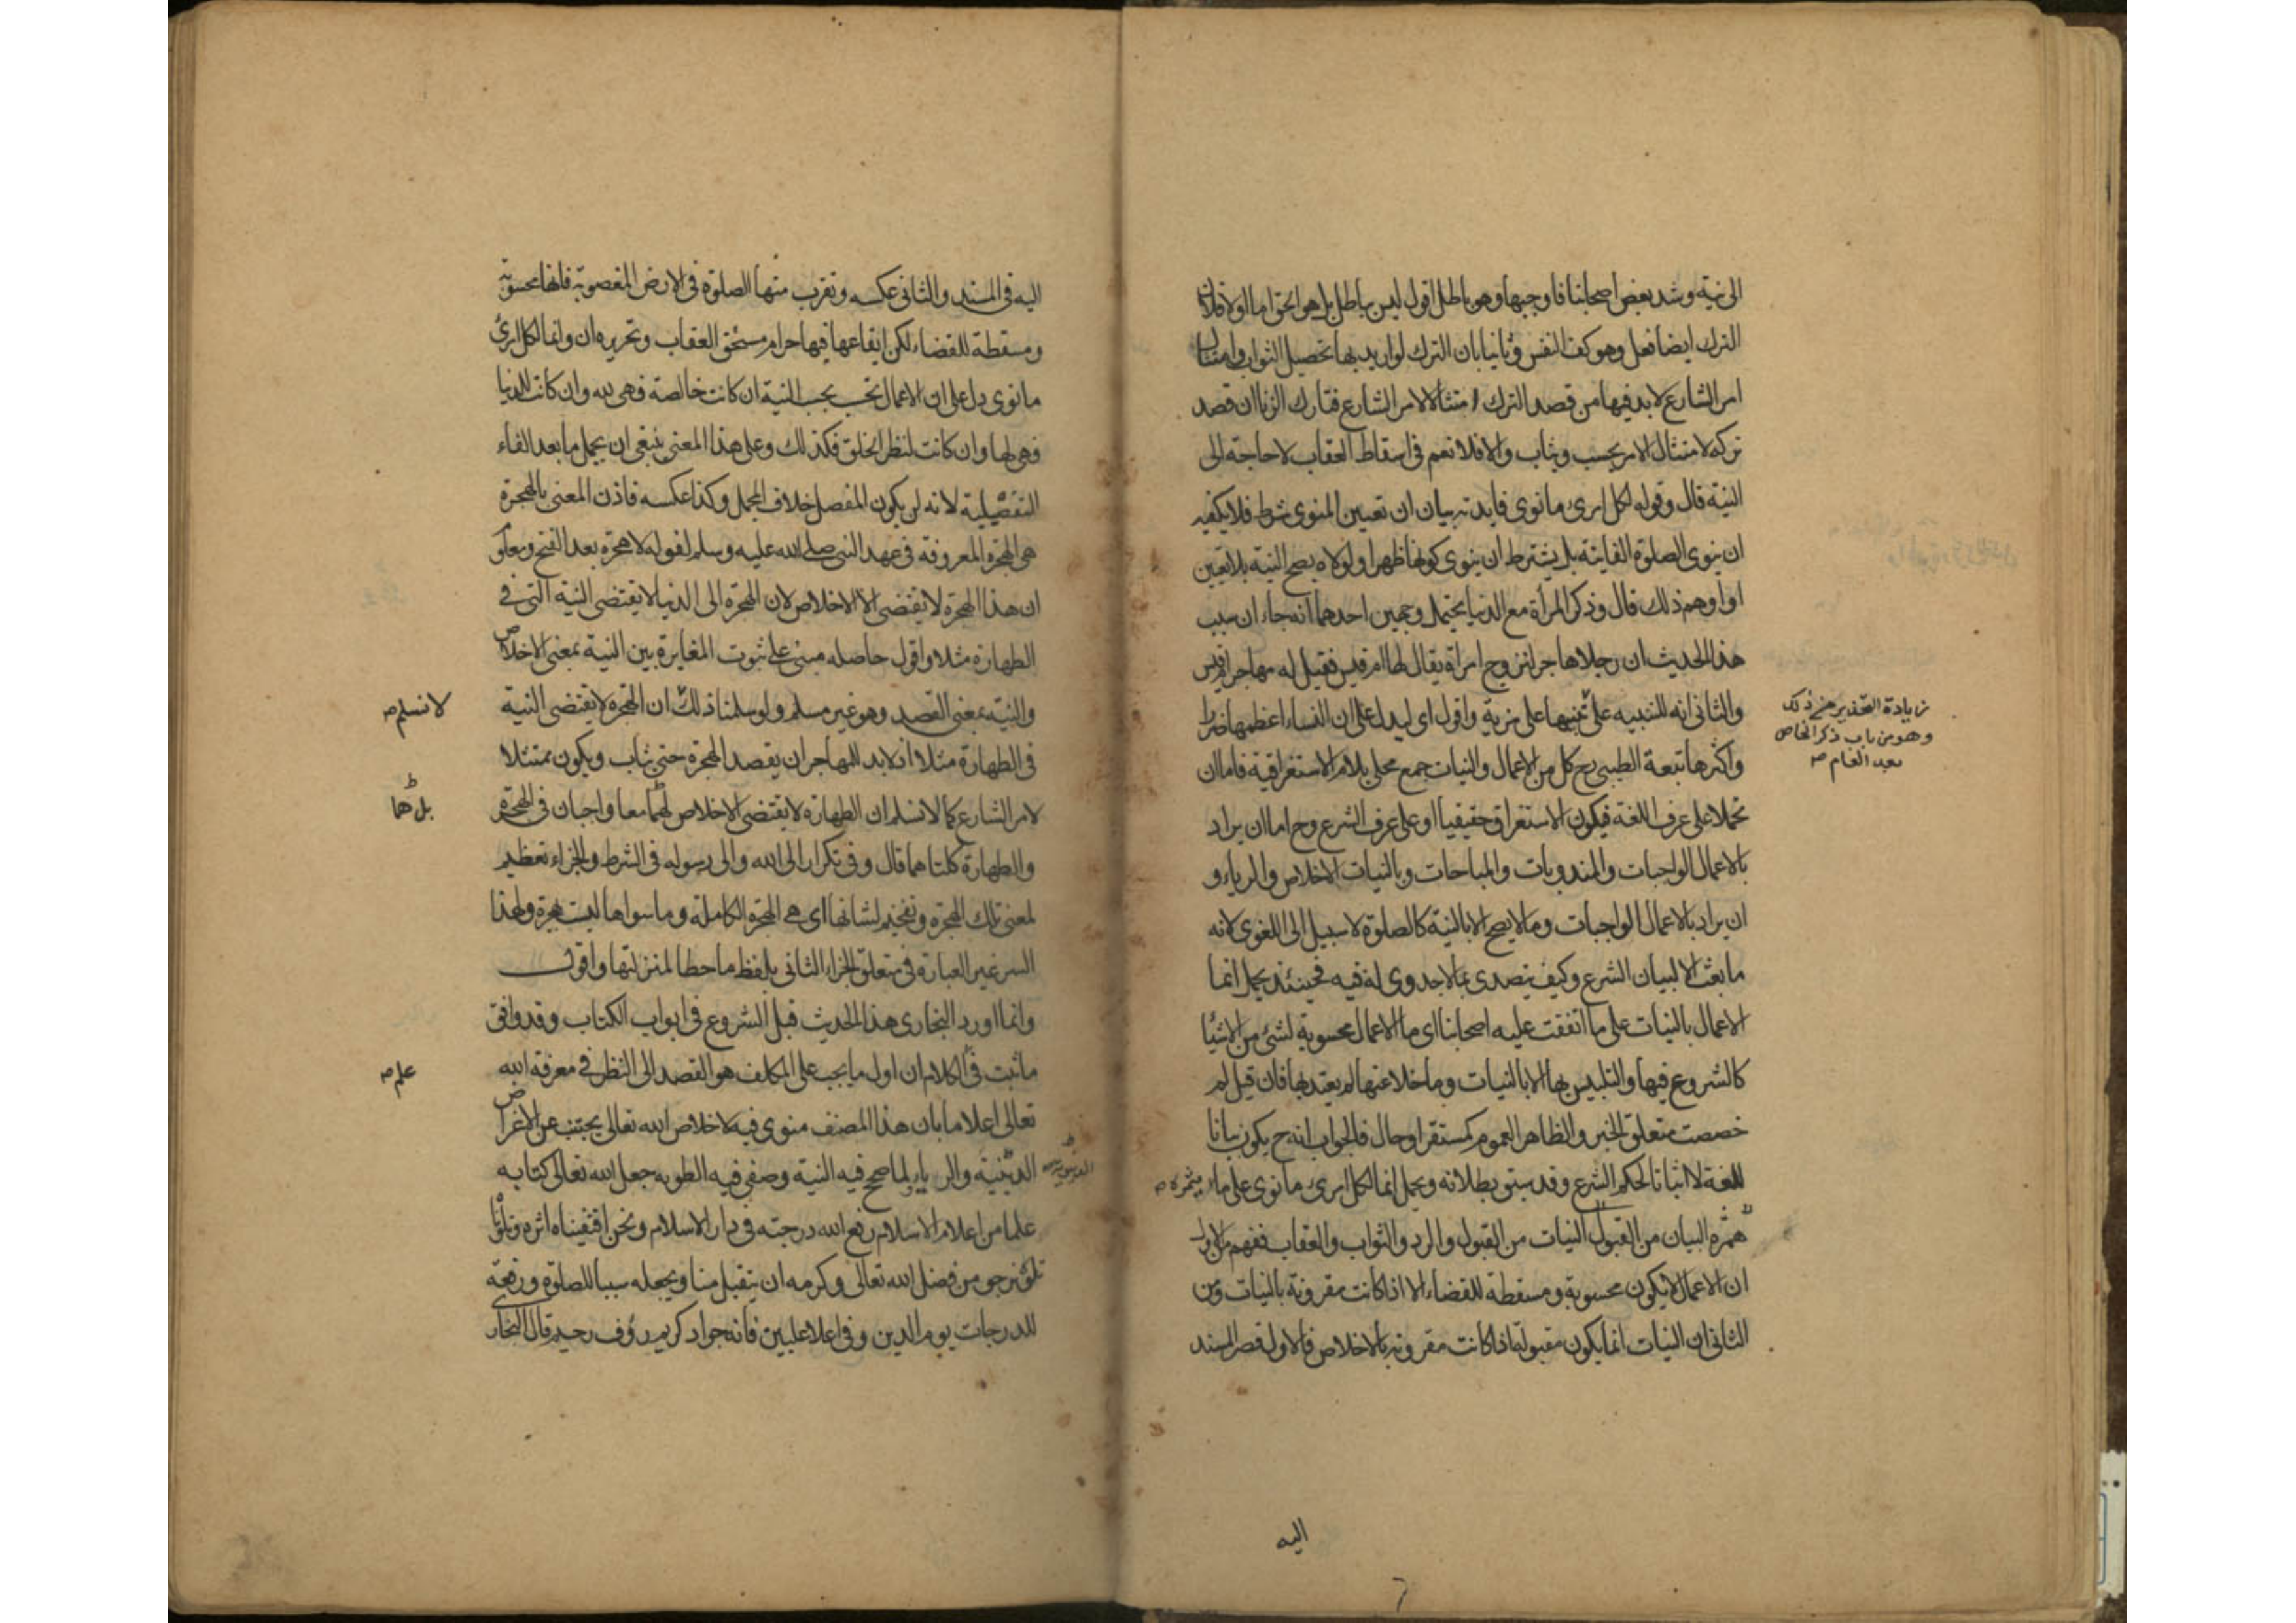 الى نية وشد بعض اصحابنا فاوجبها وهو باطل اقول ليس بباطل بل هو الحق اما اولا فلان
الترك ايضا فعل وهو كف النفس وثانيا بان الترك لو اريد بها تحصيل الثواب وامتثال
امر الشارع لا بد فيها من قصد الترك امتثالا لامر الشارع فتارك الزنا ان قصد
تركه لامتثال الامر يحسب ويثاب والا فلا نعم في اسقاط العقاب لا حاجة الى
النية قال وقوله لكل امرئ ما نوى فايدته بيان ان تعيين المنوى شرط فلا يكفيه
ان ينوى الصلوة الفايتة بل يشترط ان ينوى كونها ظهرا ولولاه يصح النية بلا تعيين
او اوهم ذلك قال وذكر المرأة مع الدنيا يحتمل وجهين احدهما انه جاء ان سبب
هذا الحديث ان رجلا هاجر لتزوج امراة يقال لها ام قيس فقيل له مهاجر ام قيس
والثانى انه للتنبيه على مزية واقول اى ليدل على ان النساء اعظمها ضررا
زيادة التحذير من ذلك
وهو من باب ذكر الخاص
بعد العام صه
واكثرها تبعة الطيبى رح كل من الاعمال والنيات جمع محلى بلام الاستغراقية فاما ان
تحملا على عرف اللغة فيكون الاستغراق حقيقيا او على عرف الشرع وح اما ان يراد
بالاعمال الواجبات والمندوبات والمباحات وبالنيات الاخلاص والرياء و
ان يراد بالاعمال الواجبات وما لا يصح الا بالنية كالصلوة لا سبيل الى اللغوى لانه
ما بعث الا لبيان الشرع وكيف يتصدى بما لا جدوى له فيه فحينئذ يحمل انما
الاعمال بالنيات على ما اتفقت عليه اصحابنا اى ما الاعمال محسوبة لشئ من الاشيا
كالشروع فيها والتلبس بها الا بالنيات وما خلا عنها لم يعتد بها فان قيل لم
خصصت متعلق الخبر والظاهر العموم كمستقر او حال فالجواب انه ح يكون بيانا
للغة لا اثباتا لحكم الشرع وقد سبق بطلانه ويحمل انما لكل امرئ ما نوى على ما يثمره صه
البيان من القبول النيات من القبول والرد والثواب والعقاب ففهم من الاول
ان الاعمال لا يكون محسوبة ومسقطة للقضاء الا اذا كانت مقرونة بالنيات ومن
الثانى ان النيات انما يكون مقبولة اذا كانت مقرونة بالاخلاص فالاول قصر المسند
اليه
اليه في المسند والثانى عكسه وتقرب منها الصلوة في الارض المغصوبة فانها محسوبة
ومسقطة للقضاء لكن ايقاعها فيها حرام مستحق العقاب وتحريره ان وانما لكل امرئ
ما نوى دل على ان الاعمال تحسب بحسب النية ان كانت خالصة فهى لله وان كانت للدنيا
فهى لها وان كانت لنظر الخلق فكذلك وعلى هذا المعنى ينبغى ان يحمل ما بعد الفاء
التفصيلية لانه لن يكون المفصل خلاف المجمل وكذا عكسه فاذن المعنى بالهجرة
هى الهجرة المعروفة في عهد النبى صلى الله عليه وسلم لقوله لا هجرة بعد الفتح ومعلوم
ان هذا الهجرة لا يقتضى الا الاخلاص لان الهجرة الى الدنيا لا يقتضى النية التى في
الطهارة مثلا واقول حاصله مبنى على ثبوت المغايرة بين النية بمعنى الاخلاص
والنية بمعنى القصد وهو غير مسلم ولو سلمنا ذلك ان الهجرة لا يقتضى النية
لا نسلم صه
في الطهارة مثلا اذ لا بد للمهاجر ان يقصد الهجرة حتى يثاب ويكون ممتثلا
لامر الشارع كما لا نسلم ان الطهارة لا يقتضى الاخلاص لهما معا واجبان في الهجرة
بل هما
والطهارة كلتاهما قال وفي تكرار الى الله والى رسوله في الشرط والجزاء تعظيم
لمعنى تلك الهجرة وتفخيم لشانها اى هى الهجرة الكاملة وما سواها ليست بهجرة ولهذا
السر غير العبارة في متعلق الجزاء الثانى بلفظ ما حطا لمنزلتها واقول
وانما اورد البخارى هذا الحديث قبل الشروع في ابواب الكتاب وقد وافق
ما ثبت في الكلام ان اول ما يجب على المكلف هو القصد الى النظر في معرفة الله
علم صه
تعالى اعلاما بان هذا المصنف منوى فيه لاخلاص الله تعالى يجتنب عن الاغراض
الدينية والرياء ولما صح فيه النية وصفى فيه الطوية جعل الله تعالى كتابه
الدنيوية صه
علما من اعلام الاسلام رفع الله درجته في دار الاسلام ونحن اقتفيناه اثره وتلونا
تلوه نرجو من فضل الله تعالى وكرمه ان يتقبل منا ويجعله سببا للصلوة ورفعة
للدرجات يوم الدين وفي اعلا عليين فانه جواد كريم رؤف رحيم قال البخارى